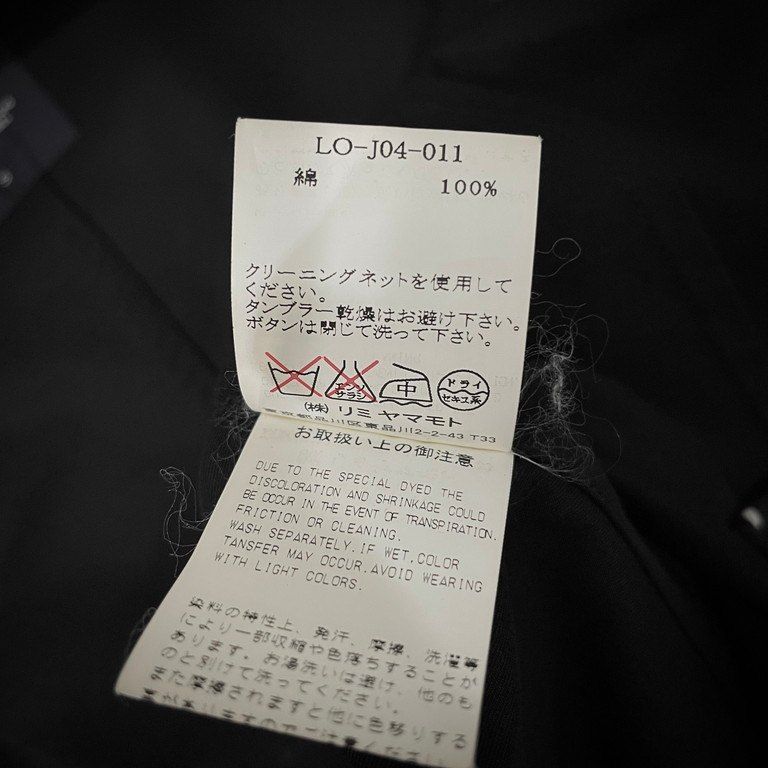 LO-J04-011
綿 100%
クリーニングネットを使用して
ください。
タンブラー乾燥はお避け下さい。
ボタンは閉じて洗って下さい。
エンソ サラシ
中
ドライ
セキユ系
(株) リミ ヤマモト
東京都品川区東品川2-2-43 T33
お取扱い上の御注意
DUE TO THE SPECIAL DYED THE
DISCOLORATION AND SHRINKAGE COULD
BE OCCUR IN THE EVENT OF TRANSPIRATION.
FRICTION OR CLEANING.
WASH SEPARATELY.IF WET,COLOR
TANSFER MAY OCCUR.AVOID WEARING
WITH LIGHT COLORS.
染料の特性上、発汗、摩擦、洗濯等
により一部収縮や色落ちすることが
あります。お湯洗いは避け、他のも
のと別けて洗ってください。
また摩擦されますと他に色移りする
事がありますのでご注意ください